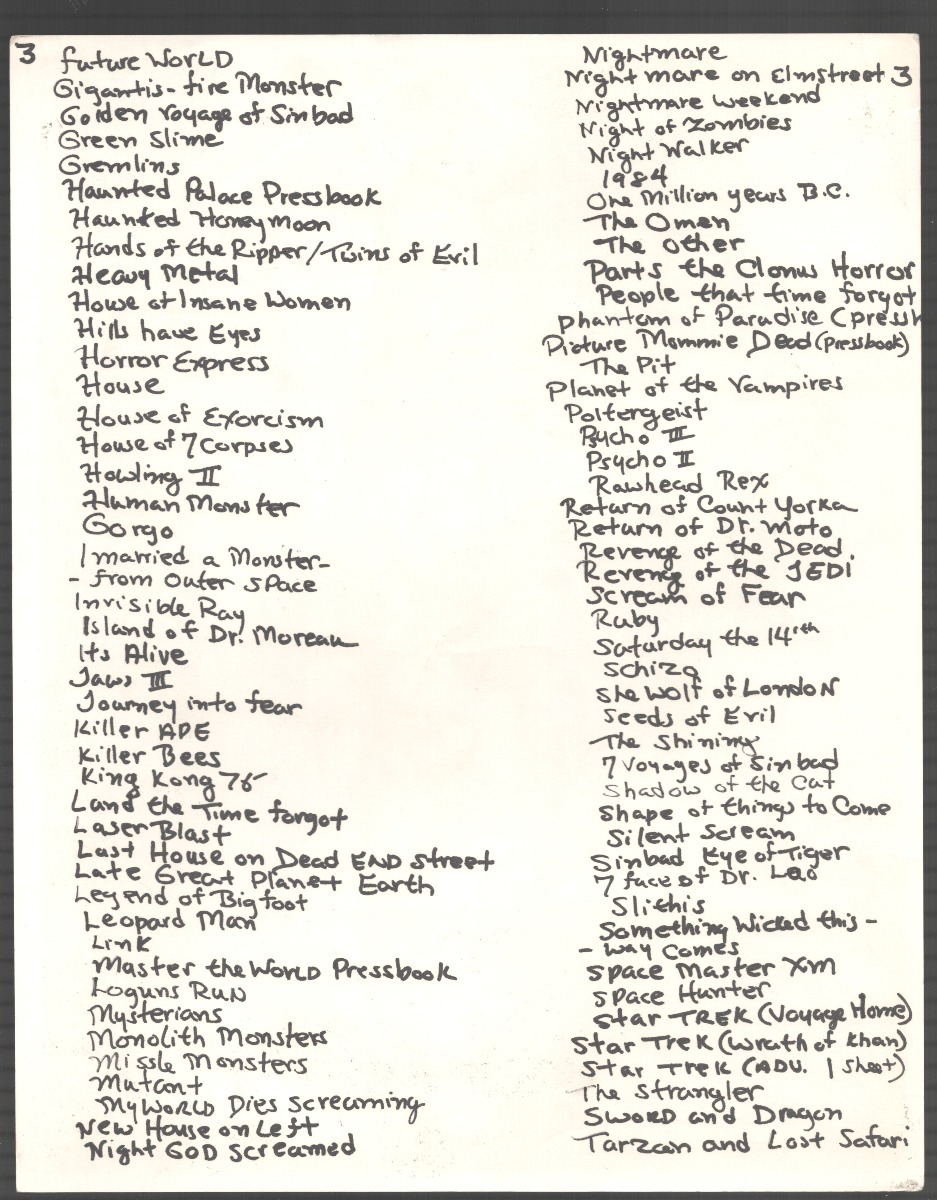 3
Future WORLD
Gigantis-fire Monster
Golden Voyage of Sinbad
Green Slime
Gremlins
Haunted Palace Pressbook
Haunted Honeymoon
Hands of the Ripper/Twins of Evil
Heavy Metal
House of Insane Women
Hills have Eyes
Horror Express
House
House of Exorcism
House of 7 Corpses
Howling II
Human Monster
Gorgo
I married a Monster-
- from Outer Space
Invisible Ray
Island of Dr. Moreau
Its Alive
Jaws III
Journey into fear
Killer APE
Killer Bees
King Kong 76
Land the Time forgot
Laser Blast
Last House on Dead END Street
Late Great Planet Earth
Legend of Bigfoot
Leopard Man
Link
Master the WORLD Pressbook
Loguns Run
Mysterians
Monolith Monsters
Missle Monsters
Mutant
My WORLD Dies Screaming
New House on Left
Night GOD Screamed
Nightmare
Nightmare on Elmstreet 3
Nightmare Weekend
Night of Zombies
Night Walker
1984
One Million years B.C.
The Omen
The Other
Parts the Clonus Horror
People that time forgot
Phantom of Paradise (press
Picture Mommie Dead (Pressbook)
The Pit
Planet of the Vampires
Poltergeist
Psycho III
Psycho II
Rawhead Rex
Return of Count Yorka
Return of Dr. Moto
Revenge of the Dead.
Revenge of the JEDI
Scream of Fear
Ruby
Saturday the 14'th
Schizo
She Wolf of LondoN
Seeds of Evil
The Shining
7 Voyages of Sinbad
Shadow of the Cat
Shape of things to Come
Silent Scream
Sinbad Eye of Tiger
7 face of Dr. Lao
Slithis
Something Wicked this -
- way Comes
Space Master Xm
Space Hunter
Star TREK (Voyage Home)
Star TREK (Wrath of Khan)
Star TREK (ADV. 1 Sheet)
The Strangler
SWORD and Dragon
Tarzan and Lost Safari